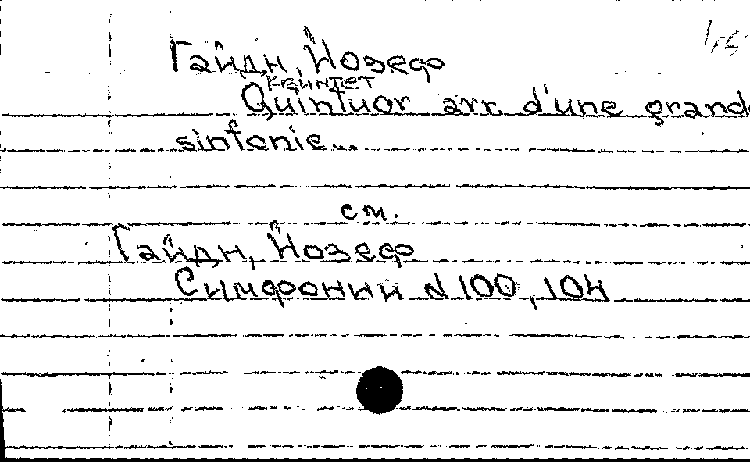 Гайдн, Йозеф
квинтет
Quintuor arr. d'une grande
sinfonie...
см.
Гайдн, Йозеф
Симфонии N 100, 104